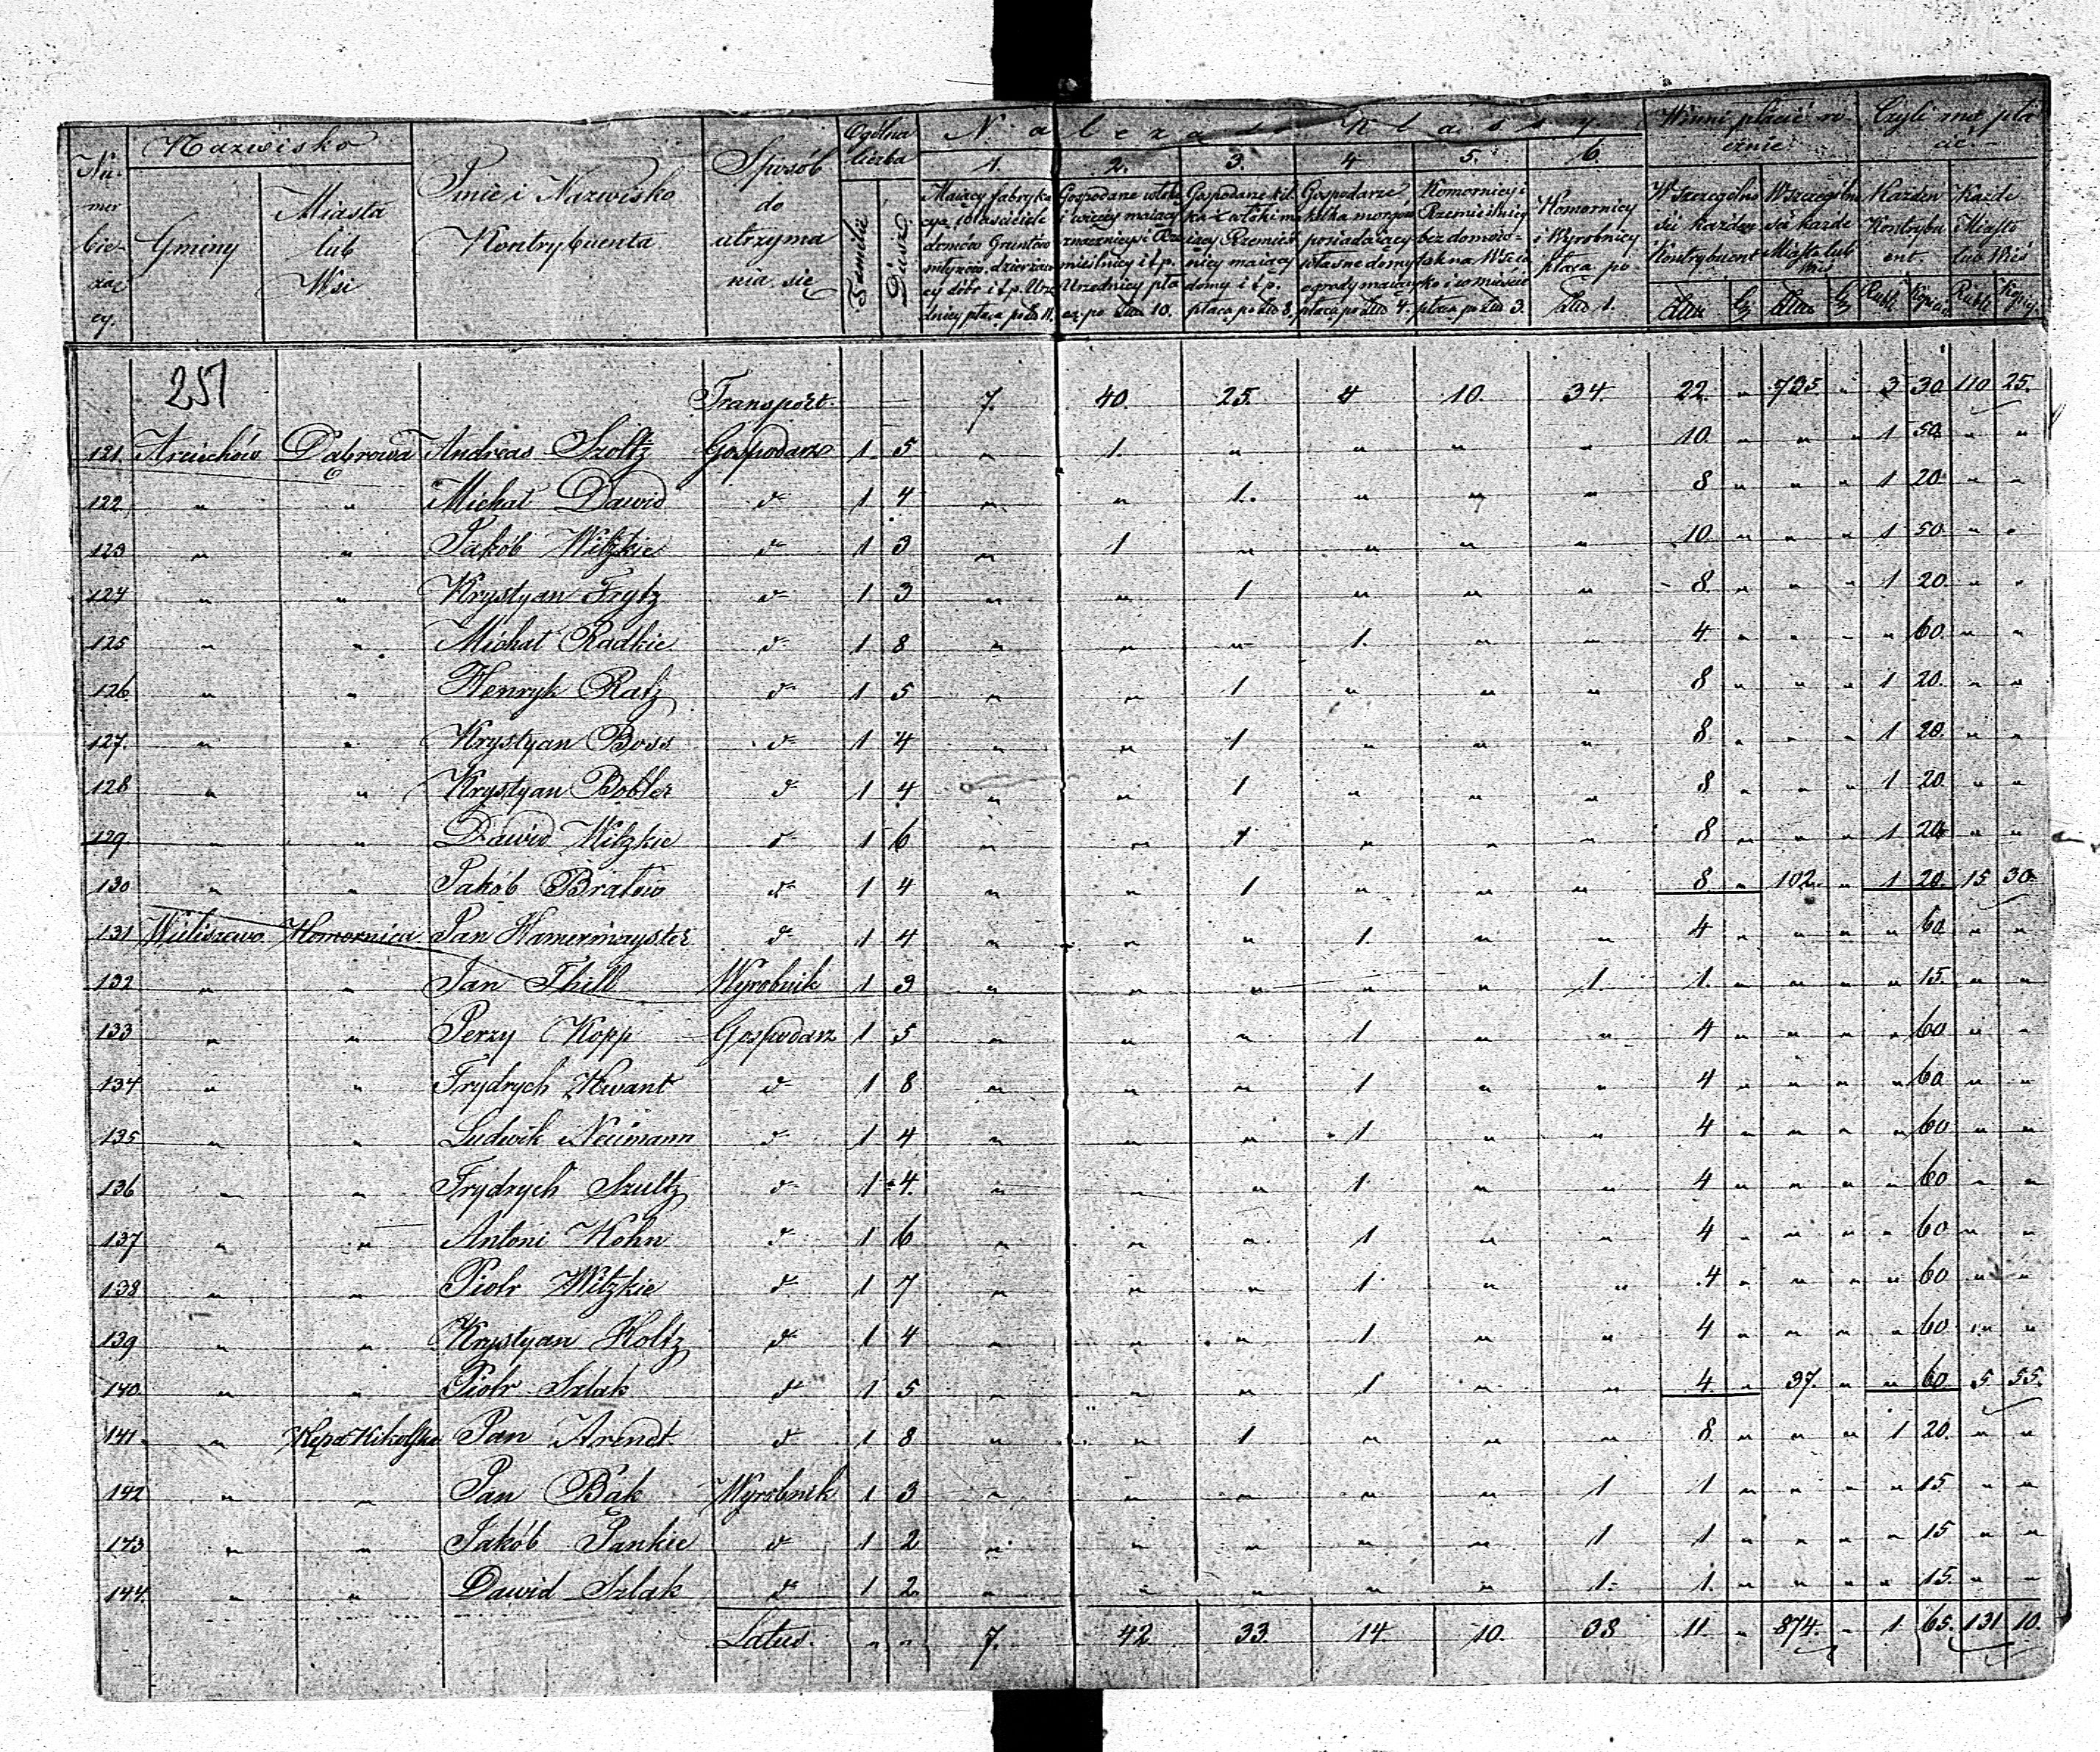 Numer bieżący. Nazwisko Gminy Miasta lub Wsi Imie i Nazwisko Kontrybuenta Sposób do utrzymania się Ogólna liczba Familii Dusz Należą do Klassy Winni płacić rocznie Czyli ma płacić
1. 2. 3. 4 5. 6.
Maiący fabryki właściciele domów Gruntów młynów, dzierżawcy dóbr i t.p. płacą po 11.
Gospodarze i więcej maiący znaczniejsi Rzemieślnicy i t.p. Urzędnicy płacą po 10.
Gospodarze maiący Rzemieślnicy maiący domy i t.p. płacą po 8.
Gospodarze kilka morgów posiadaiący własne domy ogrody maiący płacą po 4.
Komornicy i Rzemieślnicy bez domów i w mieście płacą po 3.
Komornicy i Wyrobnicy płacą po 1.
W szczególności każden Kontrybuent W szczególności każde Miasto lub Wieś Każden Kontrybuent. Każde Miasto lub Wieś
251 Transport. 7. 40. 25. 4 10. 34. 22. " 735. " 3 30 110 25.
121 Arciechów Dąbrowa Andreas Szoltz Gospodarz 1 5 " 1. " " " " 10. " " " 1 50. " "
122 " " Michał Dawid d° 1 4 " " 1. " " " 8 " " " 1 20. " "
123 " " Jakób Witzkie d° 1 3 " 1 " " " " 10. " " " 1 50 " "
124 " " Krystyan Frytz d° 1 3 " " 1 " " " 8. " " " 1 20 " "
125 " " Michał Radkie d° 1 8 " " " 1. " " 4 " " " " 60. " "
126 " " Henryk Ratz d° 1 5 " " 1 " " " 8 " " " 1 20. " "
127. " " Krystyan Boss d° 1 4 " " 1 " " " 8. " " " 1 20. " "
128 " " Krystyan Bobler d° 1 4 " " 1 " " " 8 " " " 1 20. " "
129. " " Dawid Witzkie d° 1 6 " " 1 " " " 8 " " " 1 20 " "
130 " " Jakób Bratów d° 1 4 " " 1 " " " 8 " 102. " 1 20. 15 30.
131 Wieliszewo Komornica Jan Hamermayster d° 1 4 " " " 1. " " 4 " " " " 60. " "
132 " " Jan Thill Wyrobnik 1 3 " " " " " 1. 1. " " " " 15. " "
133 " " Jerzy Kopp Gospodarz 1 5 " " " 1 " " 4 " " " " 60 " "
134 " " Frydrych Kwant d° 1 8 " " " 1 " " 4 " " " " 60 " "
135 " " Ludwik Neumann d° 1 4 " " " 1 " " 4 " " " " 60 " "
136 " " Frydrych Szultz d° 1 4. " " " 1 " " 4 " " " " 60 " "
137 " " Antoni Kohn d° 1 6 " " " 1 " " 4 " " " " 60 " "
138 " " Piotr Witzkie d° 1 7 " " " 1 " " 4 " " " " 60 " "
139 " " Krystyan Holtz d° 1 4 " " " 1 " " 4 " " " " 60 " "
140 " " Piotr Szlak d° 1 5 " " " 1 " " 4 " 37. " " 60 5 55.
141 " Kępa Kikolska Jan Arendt d° 1 8 " " 1 " " " 8. " " " 1 20. " "
142 " " Jan Bąk Wyrobnik 1 3 " " " " " 1 1 " " " " 15 " "
143 " " Jakób Jankie d° 1 2 " " " " " 1 1 " " " " 15 " "
144. " " Dawid Szlak d° 1 2 " " " " " 1. 1. " " " " 15. " "
Latus. " " 7. 42. 33. 14. 10. 38 11. " 874. " 1 65. 131 10.